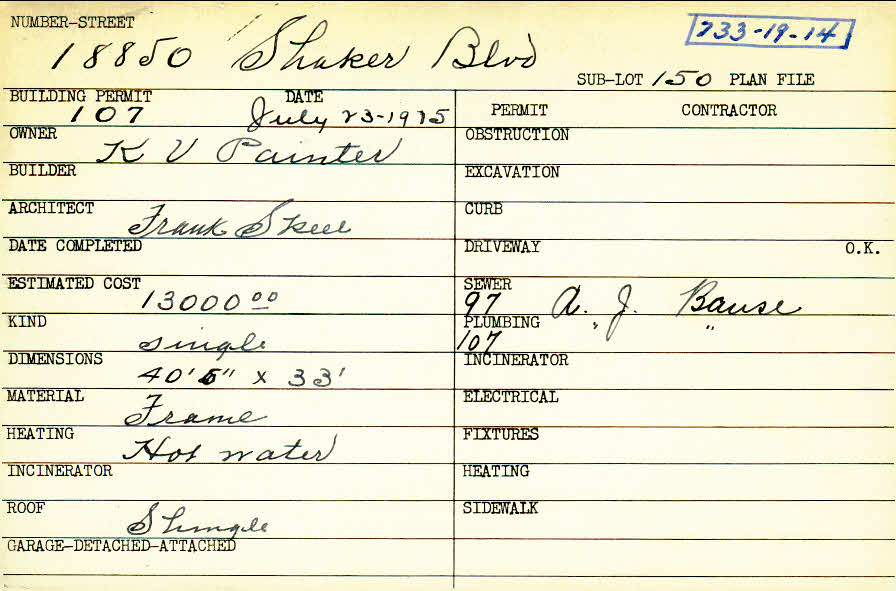 NUMBER-STREET
733-19-14
18850 Shaker Blvd
SUB-LOT 150 PLAN FILE
BUILDING PERMIT DATE
107 July 23-1915
PERMIT CONTRACTOR
OWNER
K V Painter
OBSTRUCTION
BUILDER
EXCAVATION
ARCHITECT
Frank Skeel
CURB
DATE COMPLETED
DRIVEWAY O.K.
ESTIMATED COST
13000 00
SEWER
97 A. J. Bause
KIND
single
PLUMBING
107 " "
DIMENSIONS
40' 6" x 33'
INCINERATOR
MATERIAL
Frame
ELECTRICAL
HEATING
Hot water
FIXTURES
INCINERATOR
HEATING
ROOF
Shingle
SIDEWALK
GARAGE-DETACHED-ATTACHED